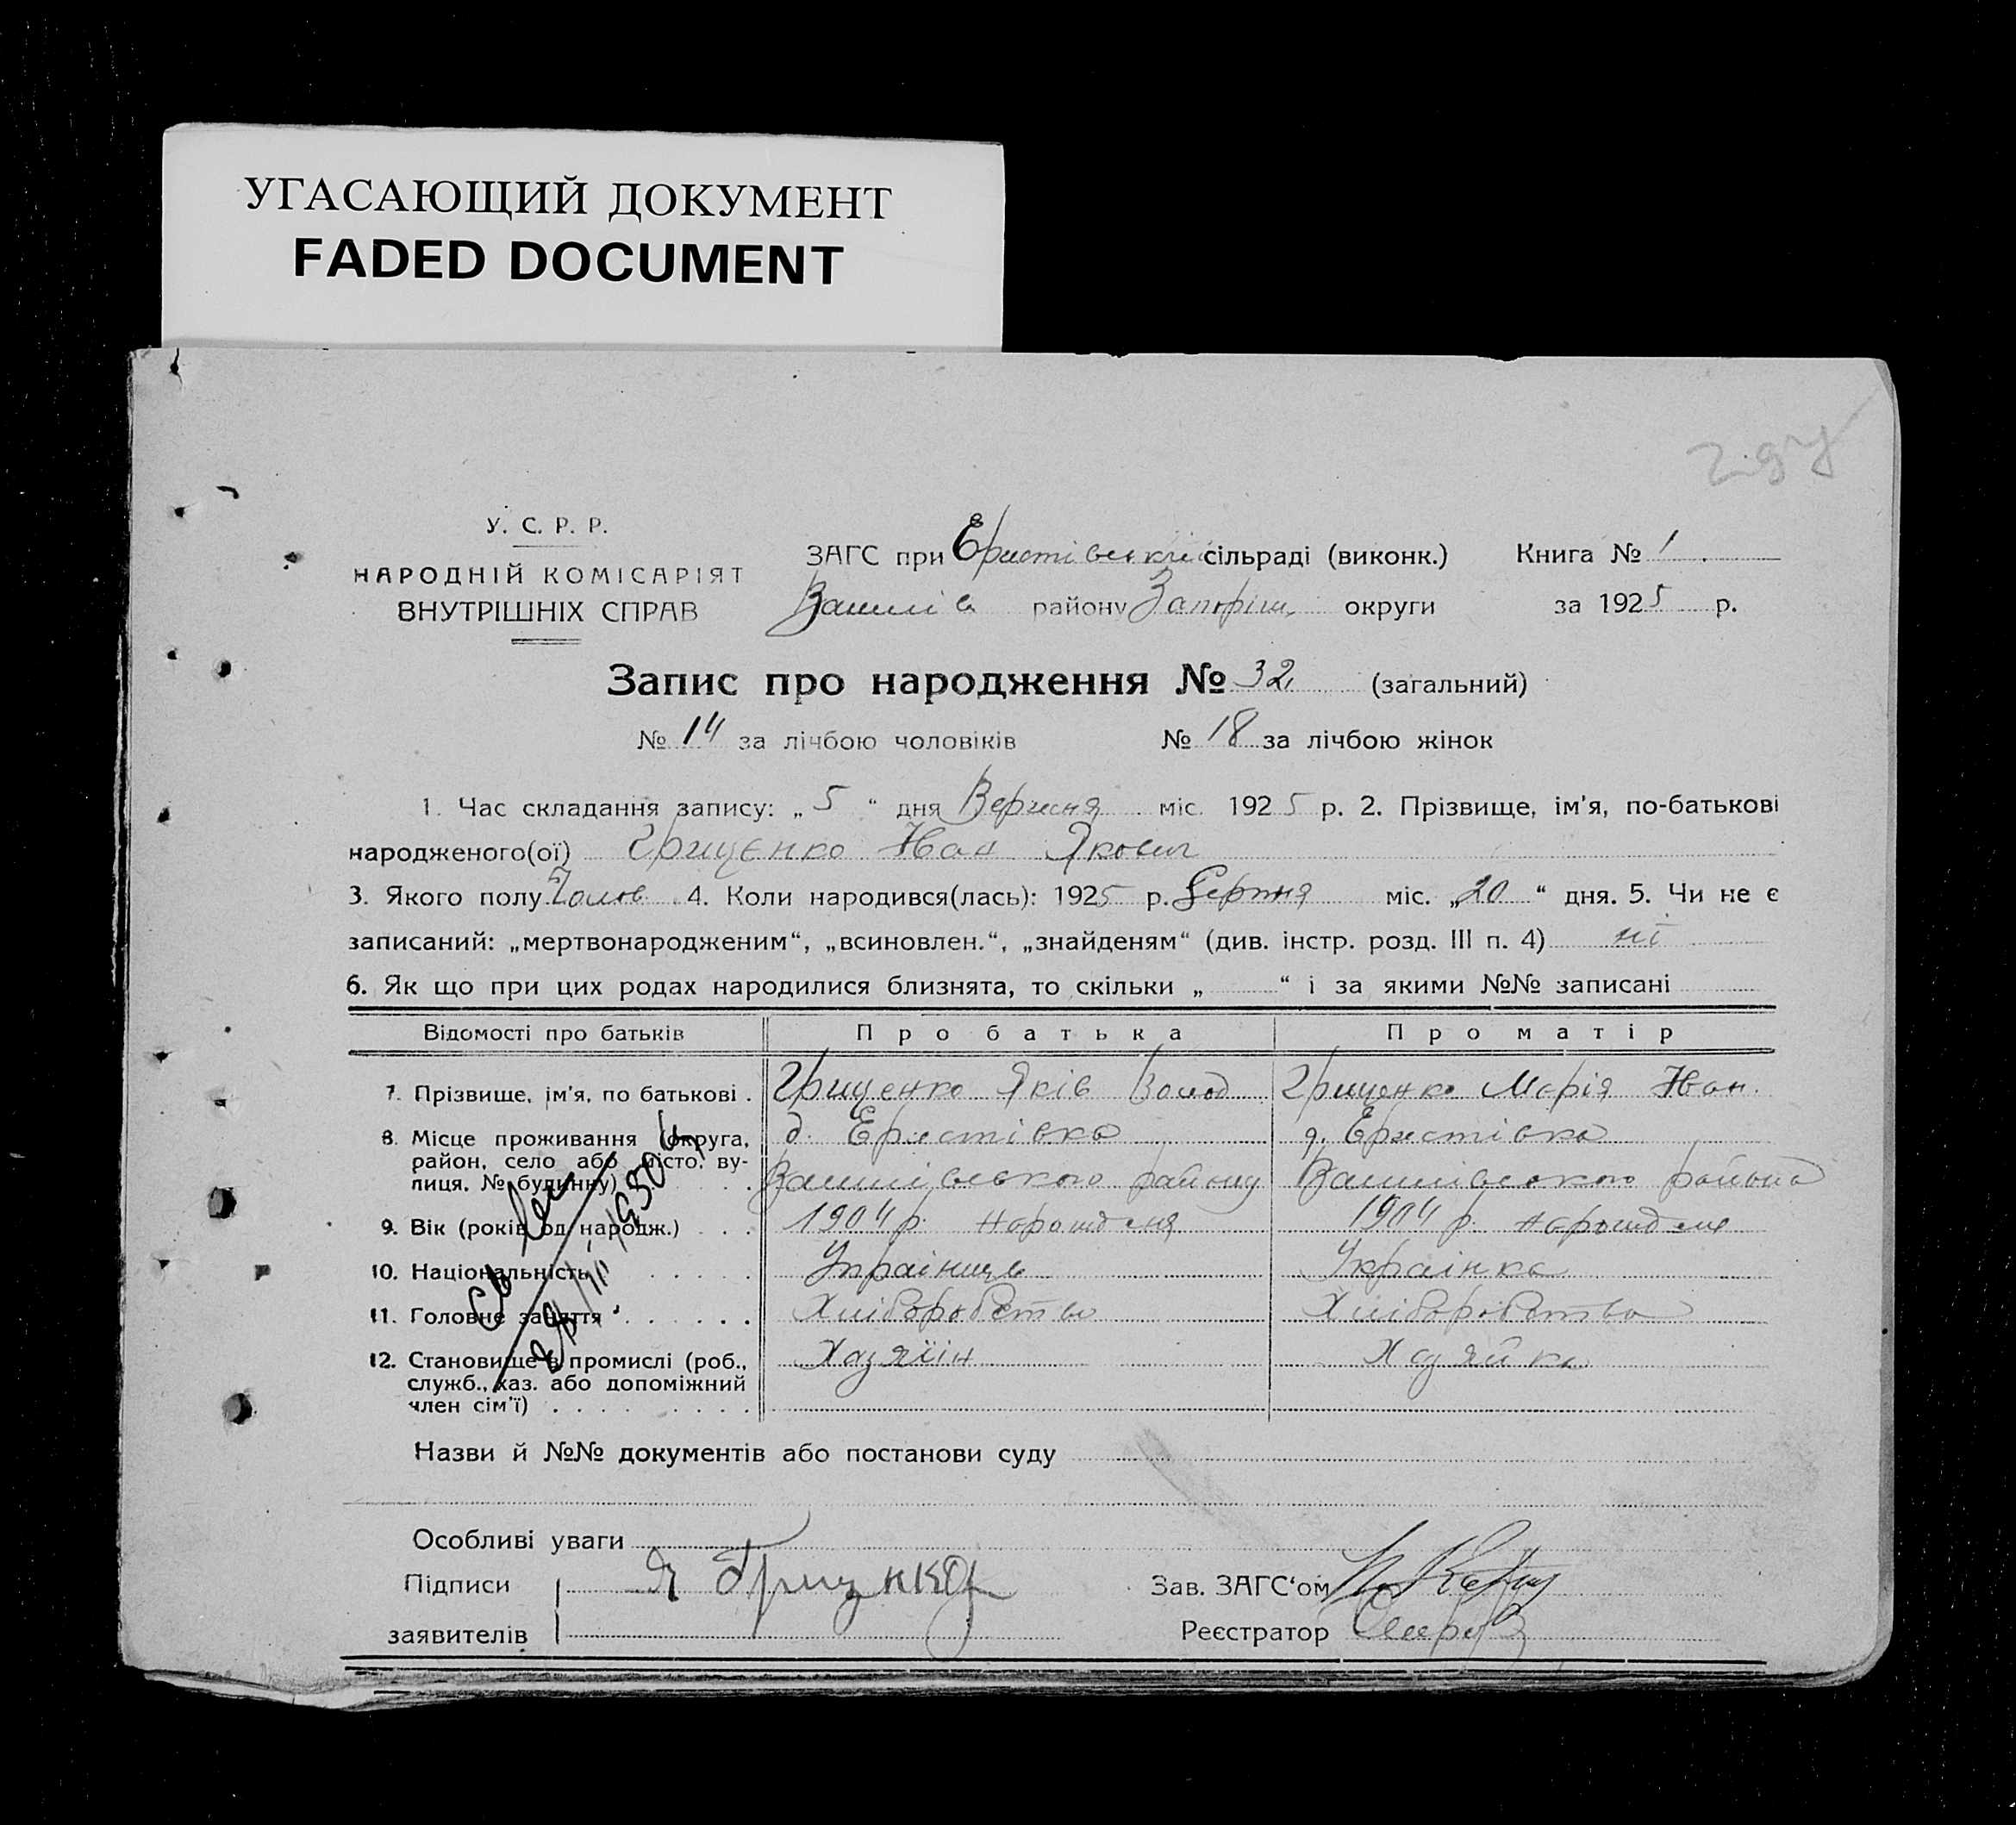 УГАСАЮЩИЙ ДОКУМЕНТ
FADED DOCUMENT
У. С. Р. Р.
НАРОДНІЙ КОМІСАРІЯТ
ВНУТРІШНІХ СПРАВ
ЗАГС при Еристівській сільраді (виконк.) Книга № 1
району Запоріш. округи за 1925 р.
Запис про народження № 32 (загальний)
№ 14 за лічбою чоловіків № 18 за лічбою жінок
1. Час складання запису: „ 5 “ дня Вересня міс. 1925 р. 2. Прізвище, ім'я, по-батькові
народженого(ої) Грищенко Іван Якович
3. Якого полу Чолов. 4. Коли народився(лась): 1925 р. Серпня міс. „20“ дня. 5. Чи не є
записаний: „мертвонародженим“, „всиновлен.“, „знайденям“ (див. інстр. розд. III п. 4) ні
6. Як що при цих родах народилися близнята, то скільки „ “ і за якими №№ записані
Відомості про батьків Про батька Про матір
7. Прізвище, ім'я, по батькові . Грищенко Яків Грищенко Марія Іван.
8. Місце проживання (округа, район, село або місто, вулиця, № будинку) д. Еристівка д. Еристівка
району района
9. Вік (років од народж.) . . . 1904 р. народження 1904 р. народження
10. Національність . . . . . Українець Українка
11. Головне заняття . . . . . . Хліборобство Хліборобство
12. Становище в промислі (роб., служб., хаз. або допоміжний член сім'ї) . . . . . . . . . Хазяїн Хазяйка
Назви й №№ документів або постанови суду
Особливі уваги
Підписи Я Грищенко Зав. ЗАГС‘ом
заявителів Реєстратор